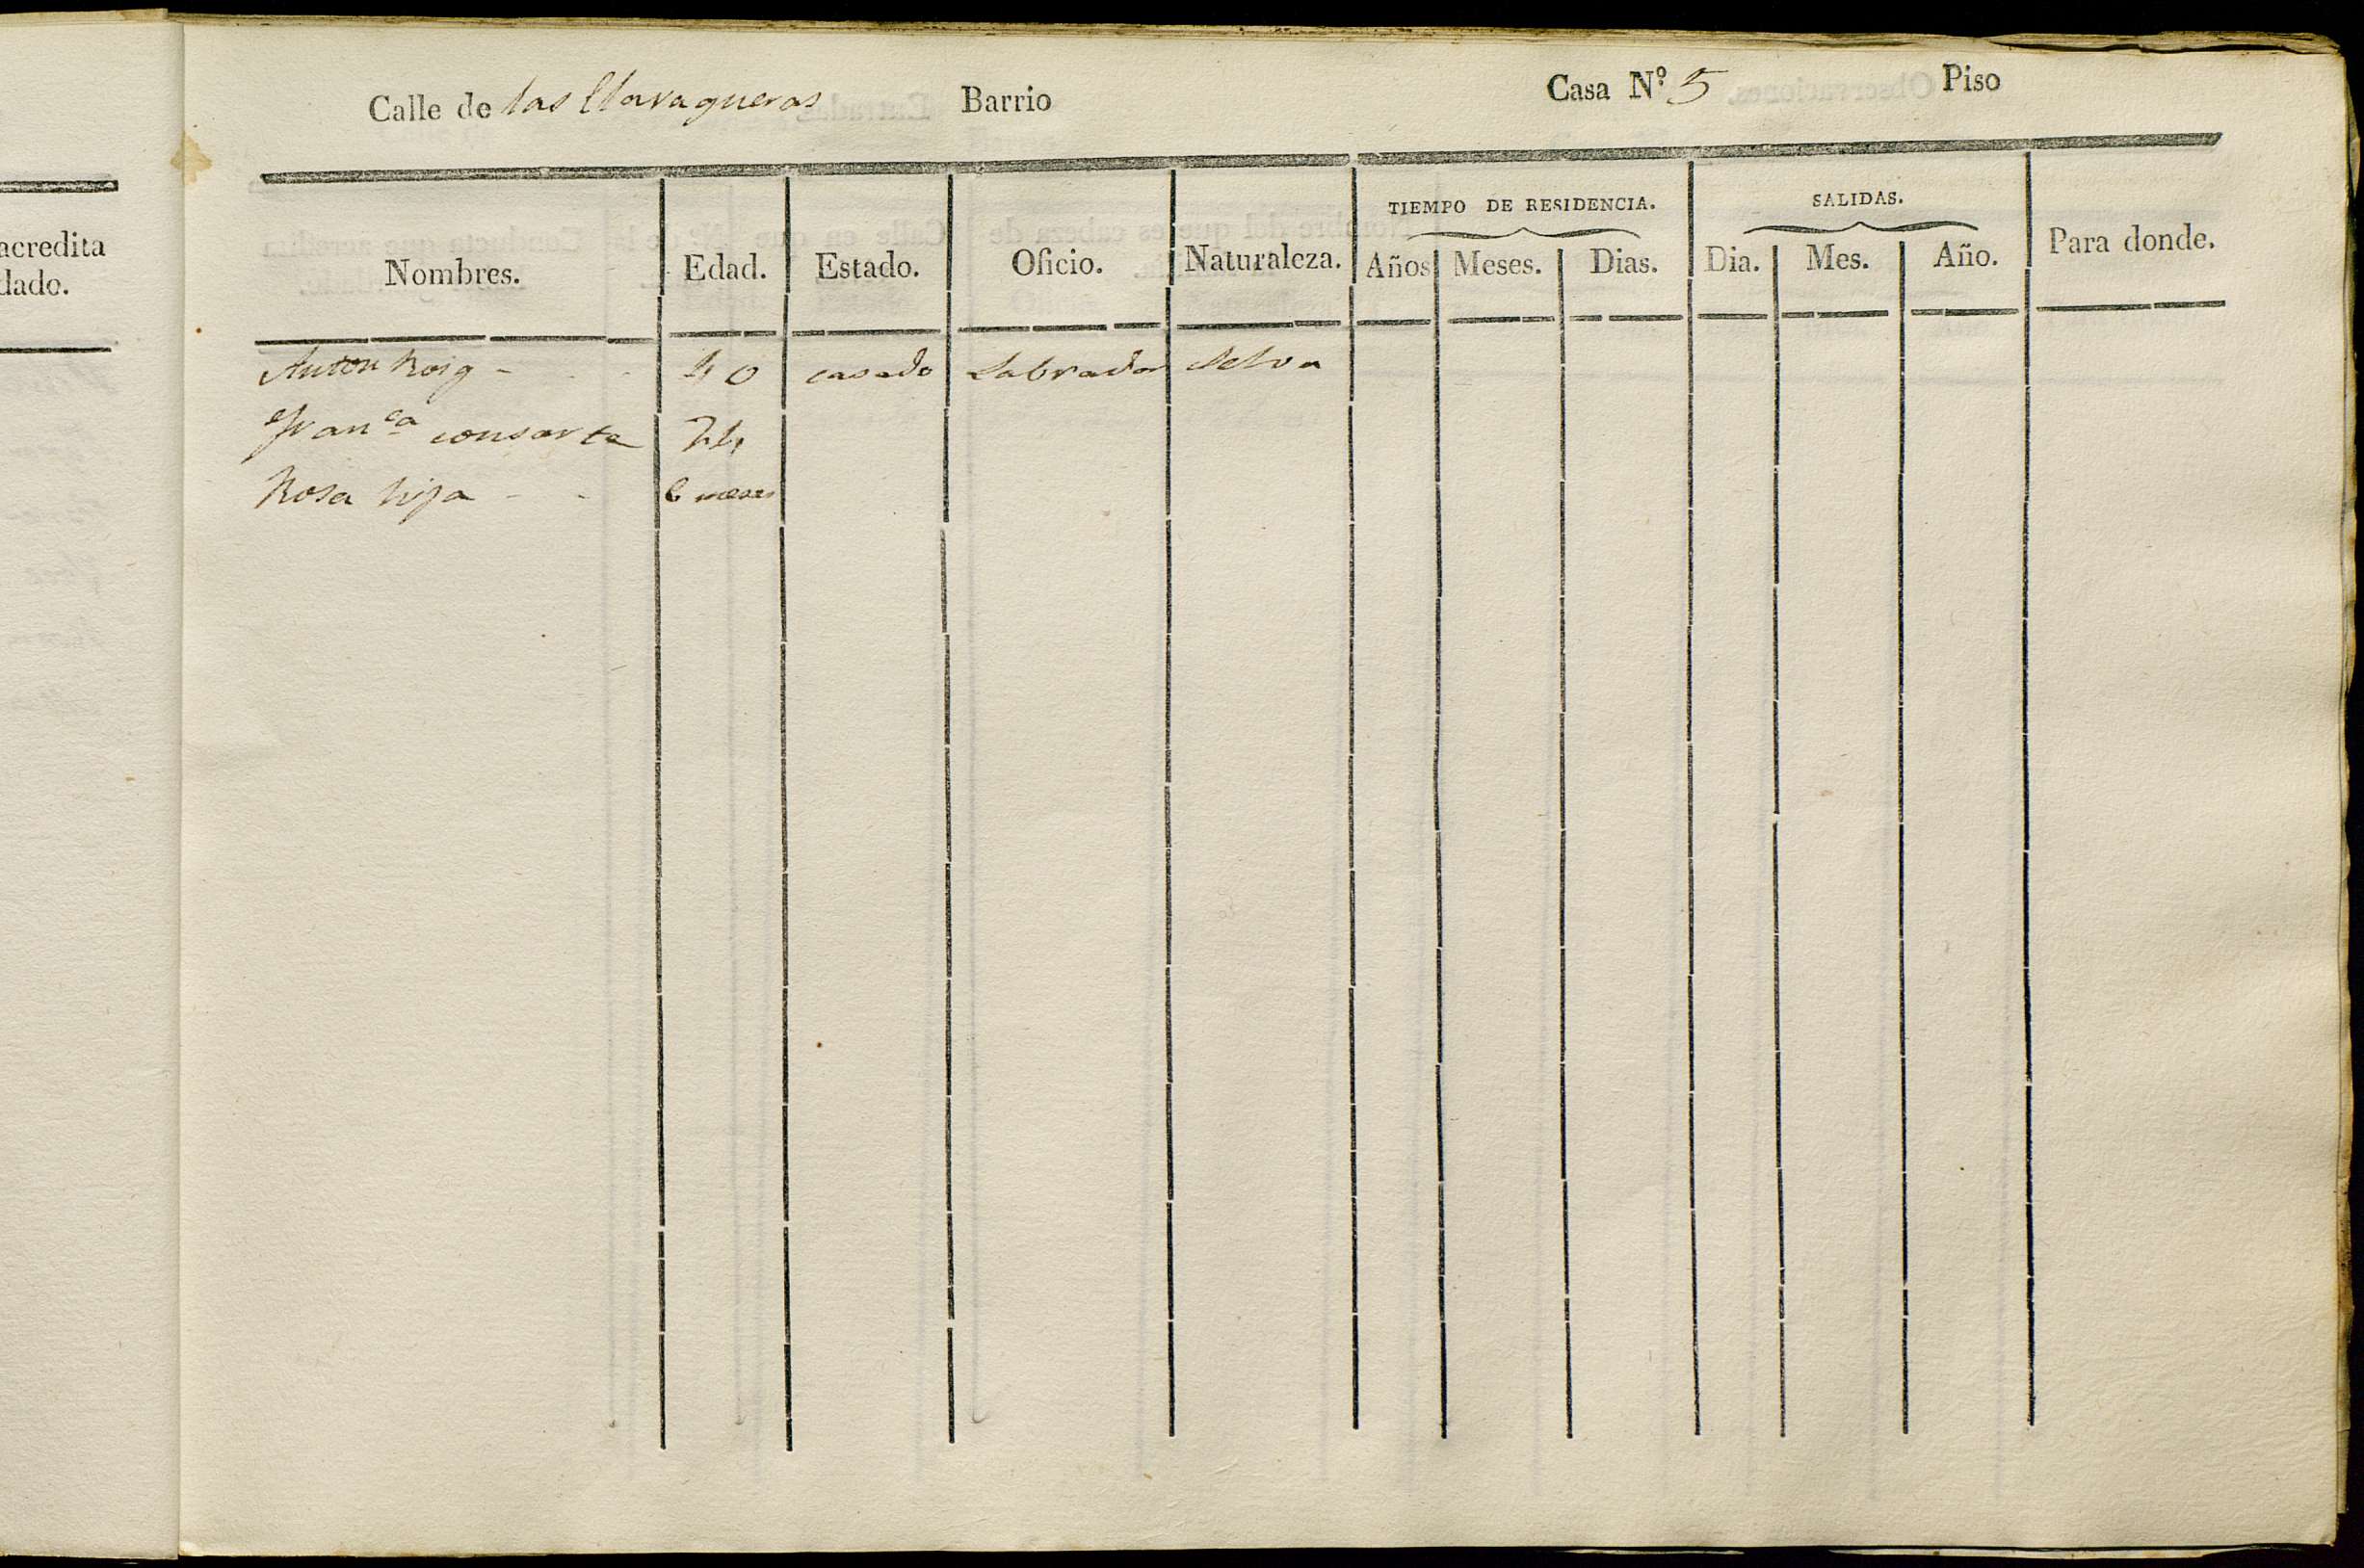 acredita
dado.
Calle de las Llavagueras Barrio Casa Nº 5 Piso
TIEMPO DE RESIDENCIA. SALIDAS.
Nombres. Edad. Estado. Oficio. Naturaleza. Años Meses. Dias. Dia. Mes. Año. Para donde.
Anton Roig - - - 40 casado Labrador Selva
Franca consorte 24
Rosa hija - - 6 meses